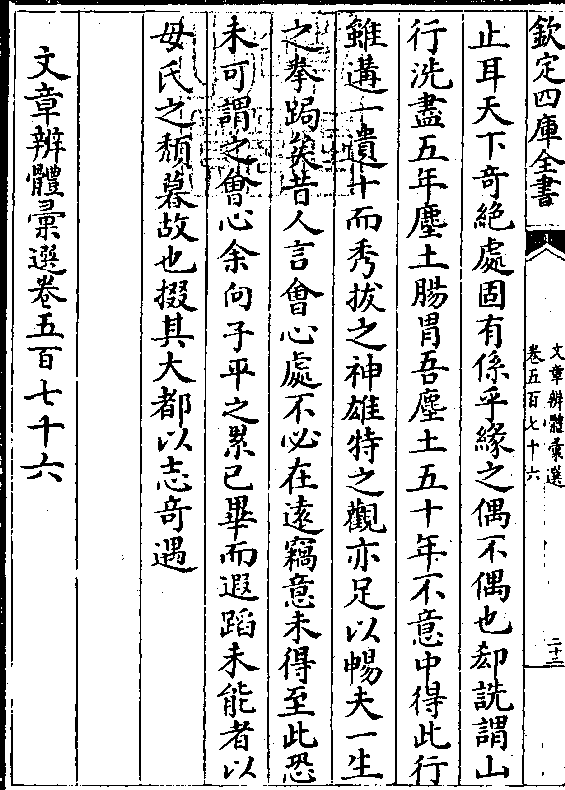 欽定四庫全書
文章辨體彙選
卷五百七十六
二十二
止耳天下奇絶處固有係乎緣之偶不偶也郄詵謂山
行洗盡五年塵土腸胃吾塵土五十年不意中得此行
雖遘一遺十而秀拔之神雄特之觀亦足以暢夫一生
之拳跼矣昔人言會心處不必在遠竊意未得至此恐
未可謂之會心余向子平之累已畢而遐蹈未能者以
毋氏之頽暮故也掇其大都以志奇遇
文章辨體彙選卷五百七十六